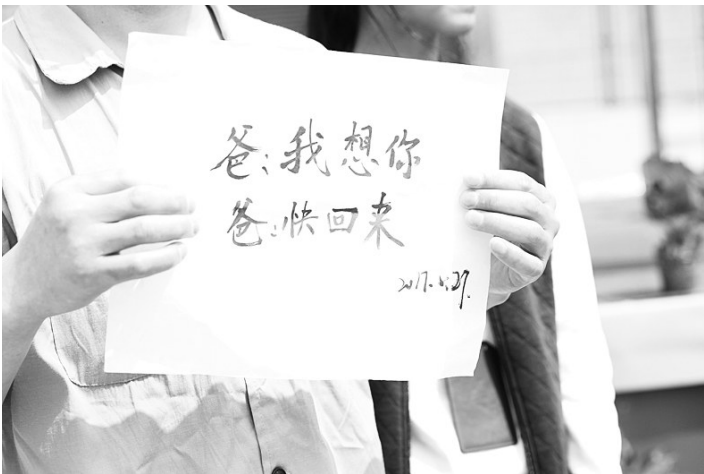 爸:我想你
爸:快回来
2017.4.29.